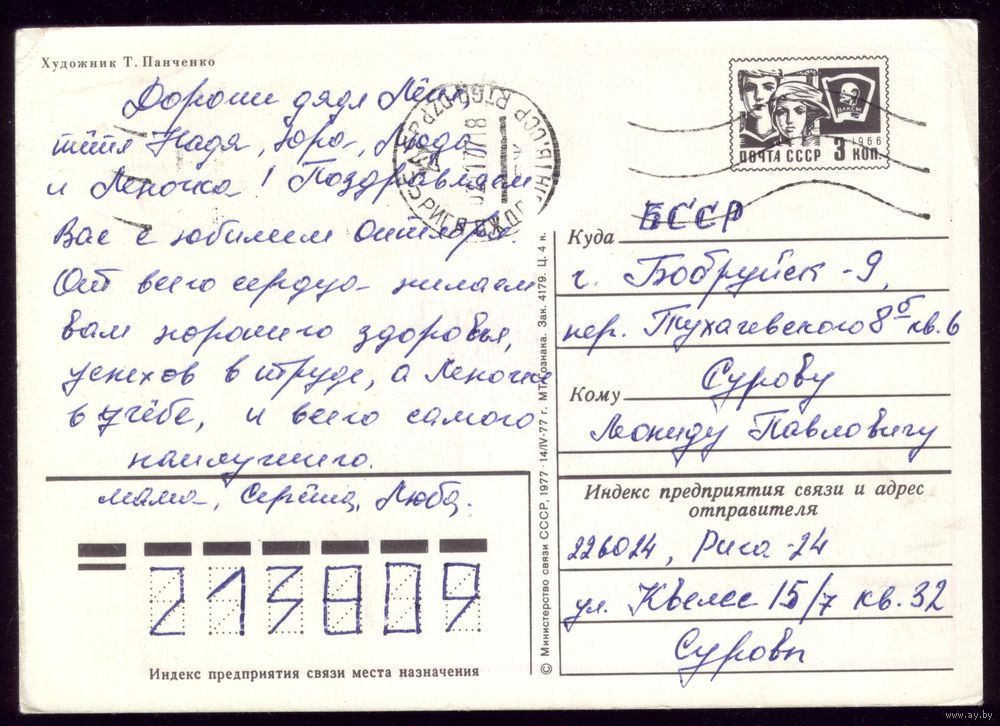 Художник Т. Панченко
Дорогие дядя Лёня
тётя Надя, Юра, Люда
и Леночка! Поздравляем
Вас с юбилеем Октября.
От всего сердца желаем
вам хорошего здоровья,
успехов в труде, а Леночке
в учёбе, и всего самого
наилучшего.
мама, Серёжа, Люба.
213809
Индекс предприятия связи места назначения
© Министерство связи СССР, 1977 · 14/IV-77 г. МТ Гознака. Зак. 4179. Ц. 4 к.
РИГА
ПОЧТА СССР 3 КОП.
1966
ВЛКСМ
БССР
Куда
г. Бобруйск-9,
пер. Тухачевского 8б кв. 6
Сурову
Кому
Леониду Павловичу
Индекс предприятия связи и адрес
отправителя
226024, Рига-24
ул. Квелес 15/7 кв. 32
Суровы
www.ay.by